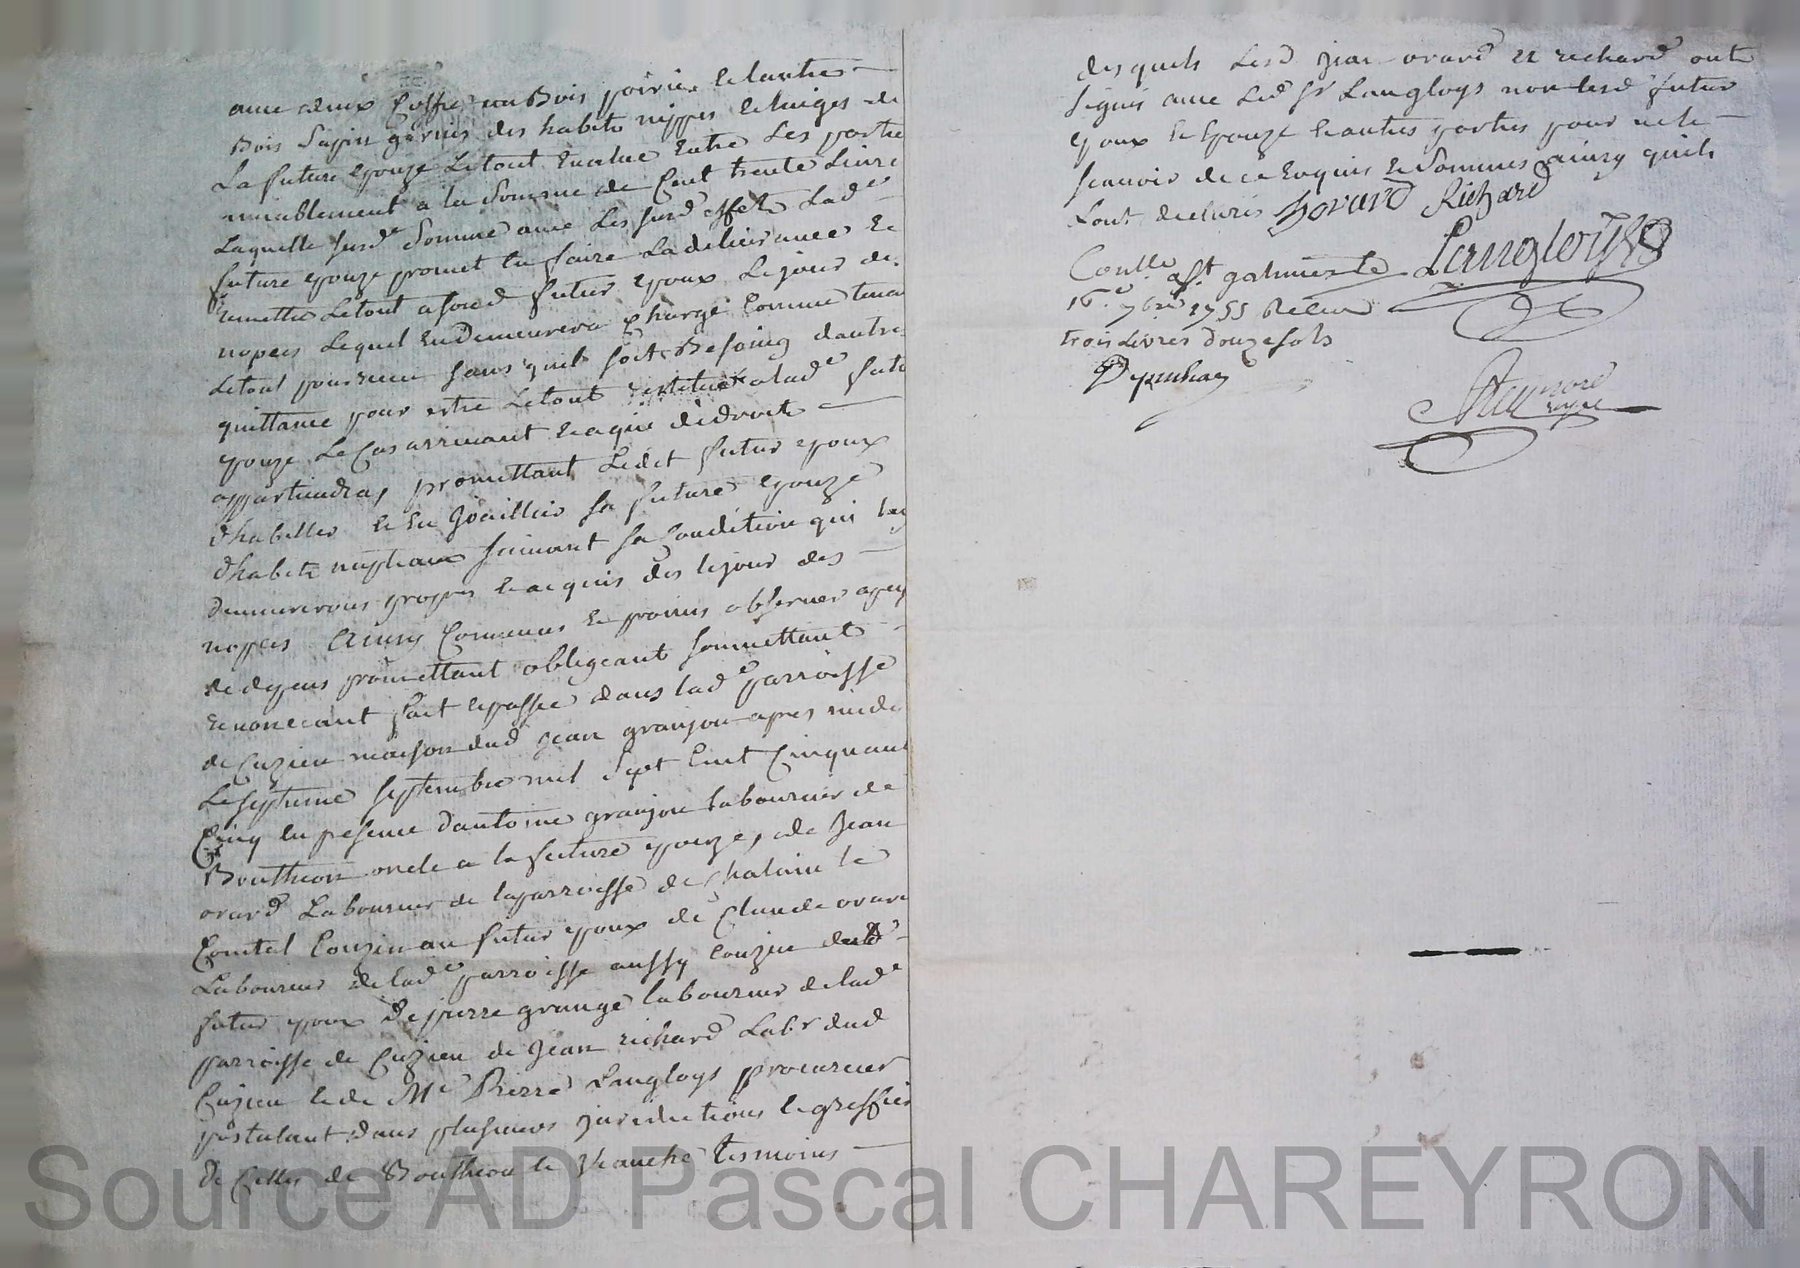 avec deux Coffre un Bois poirier Et lautre
Bois Sapin garnis des habits nippes et linges de
La future Epouze Le tout Evalué Entre Les partie
amiablement a la Somme de Cent trente Livre
Laquelle susde Somme avec Les susd effets Lade
future epouze promet luy faire La delivrance Et
Remettre Le tout a sond futur Epoux Le jour des
nopces Lequel En demeurera Chargé Comme tenu
Le tout pour receu sans quil soit Besoing dautre
quittance pour estre Le tout restitué a lade futu
Epouze Le Cas arrivant Et a qui de droits
appartiendra, promettant Ledit futur Epoux
dhabiller Et En Joaillier sa future Epouze
dhabits nuptiaux suivant sa Condition qui luy
demeureront propres Et acquis dès le jour des
nopces Ainsy Convenus Et promis observer a peyne
de depens promettant obligeant soumettant
Renoncant fait Et passé dans lade parroisse
de Cuzieu maison dud Jean granjon apres midy
Le septieme septembre mil sept Cent Cinquant
Cinq En presence d'antoine granjon laboureur de
Boutheon oncle a la future epouze, de Jean
ovard Laboureur de la parroisse de Chalain le
Comtal Couzin au futur Epoux de Claude ovard
Laboureur de lade parroisse aussy couzin dud
futur epoux De pierre grange laboureur de lade
parroisse de Cuzieu de Jean richard Labr dud
Cuzieu Et de Me Pierre Langloys procureur
postulant dans plusieurs Juridictions Et greffier
De Celles de Boutheon Et Veauche tesmoins
des quels Lesd Jean ovard Et richard ont
signés avec Led sr Langloys non lesd futur
Epoux Et Epouze Et autres parties pour ne le
scavoir de ce Enquis Et Sommés ainsy quils
L'ont declarés hovard Richard
Conllé a St galmier le Langloys
16.e 7bre 1755 Receu
trois Livres douze sols
Source AD Pascal CHAREYRON